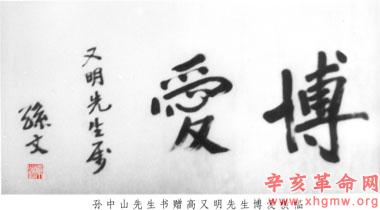 博愛
又明先生属
孫文
孙中山先生书赠高又明先生博爱横幅
辛亥革命网
www.xhgmw.org